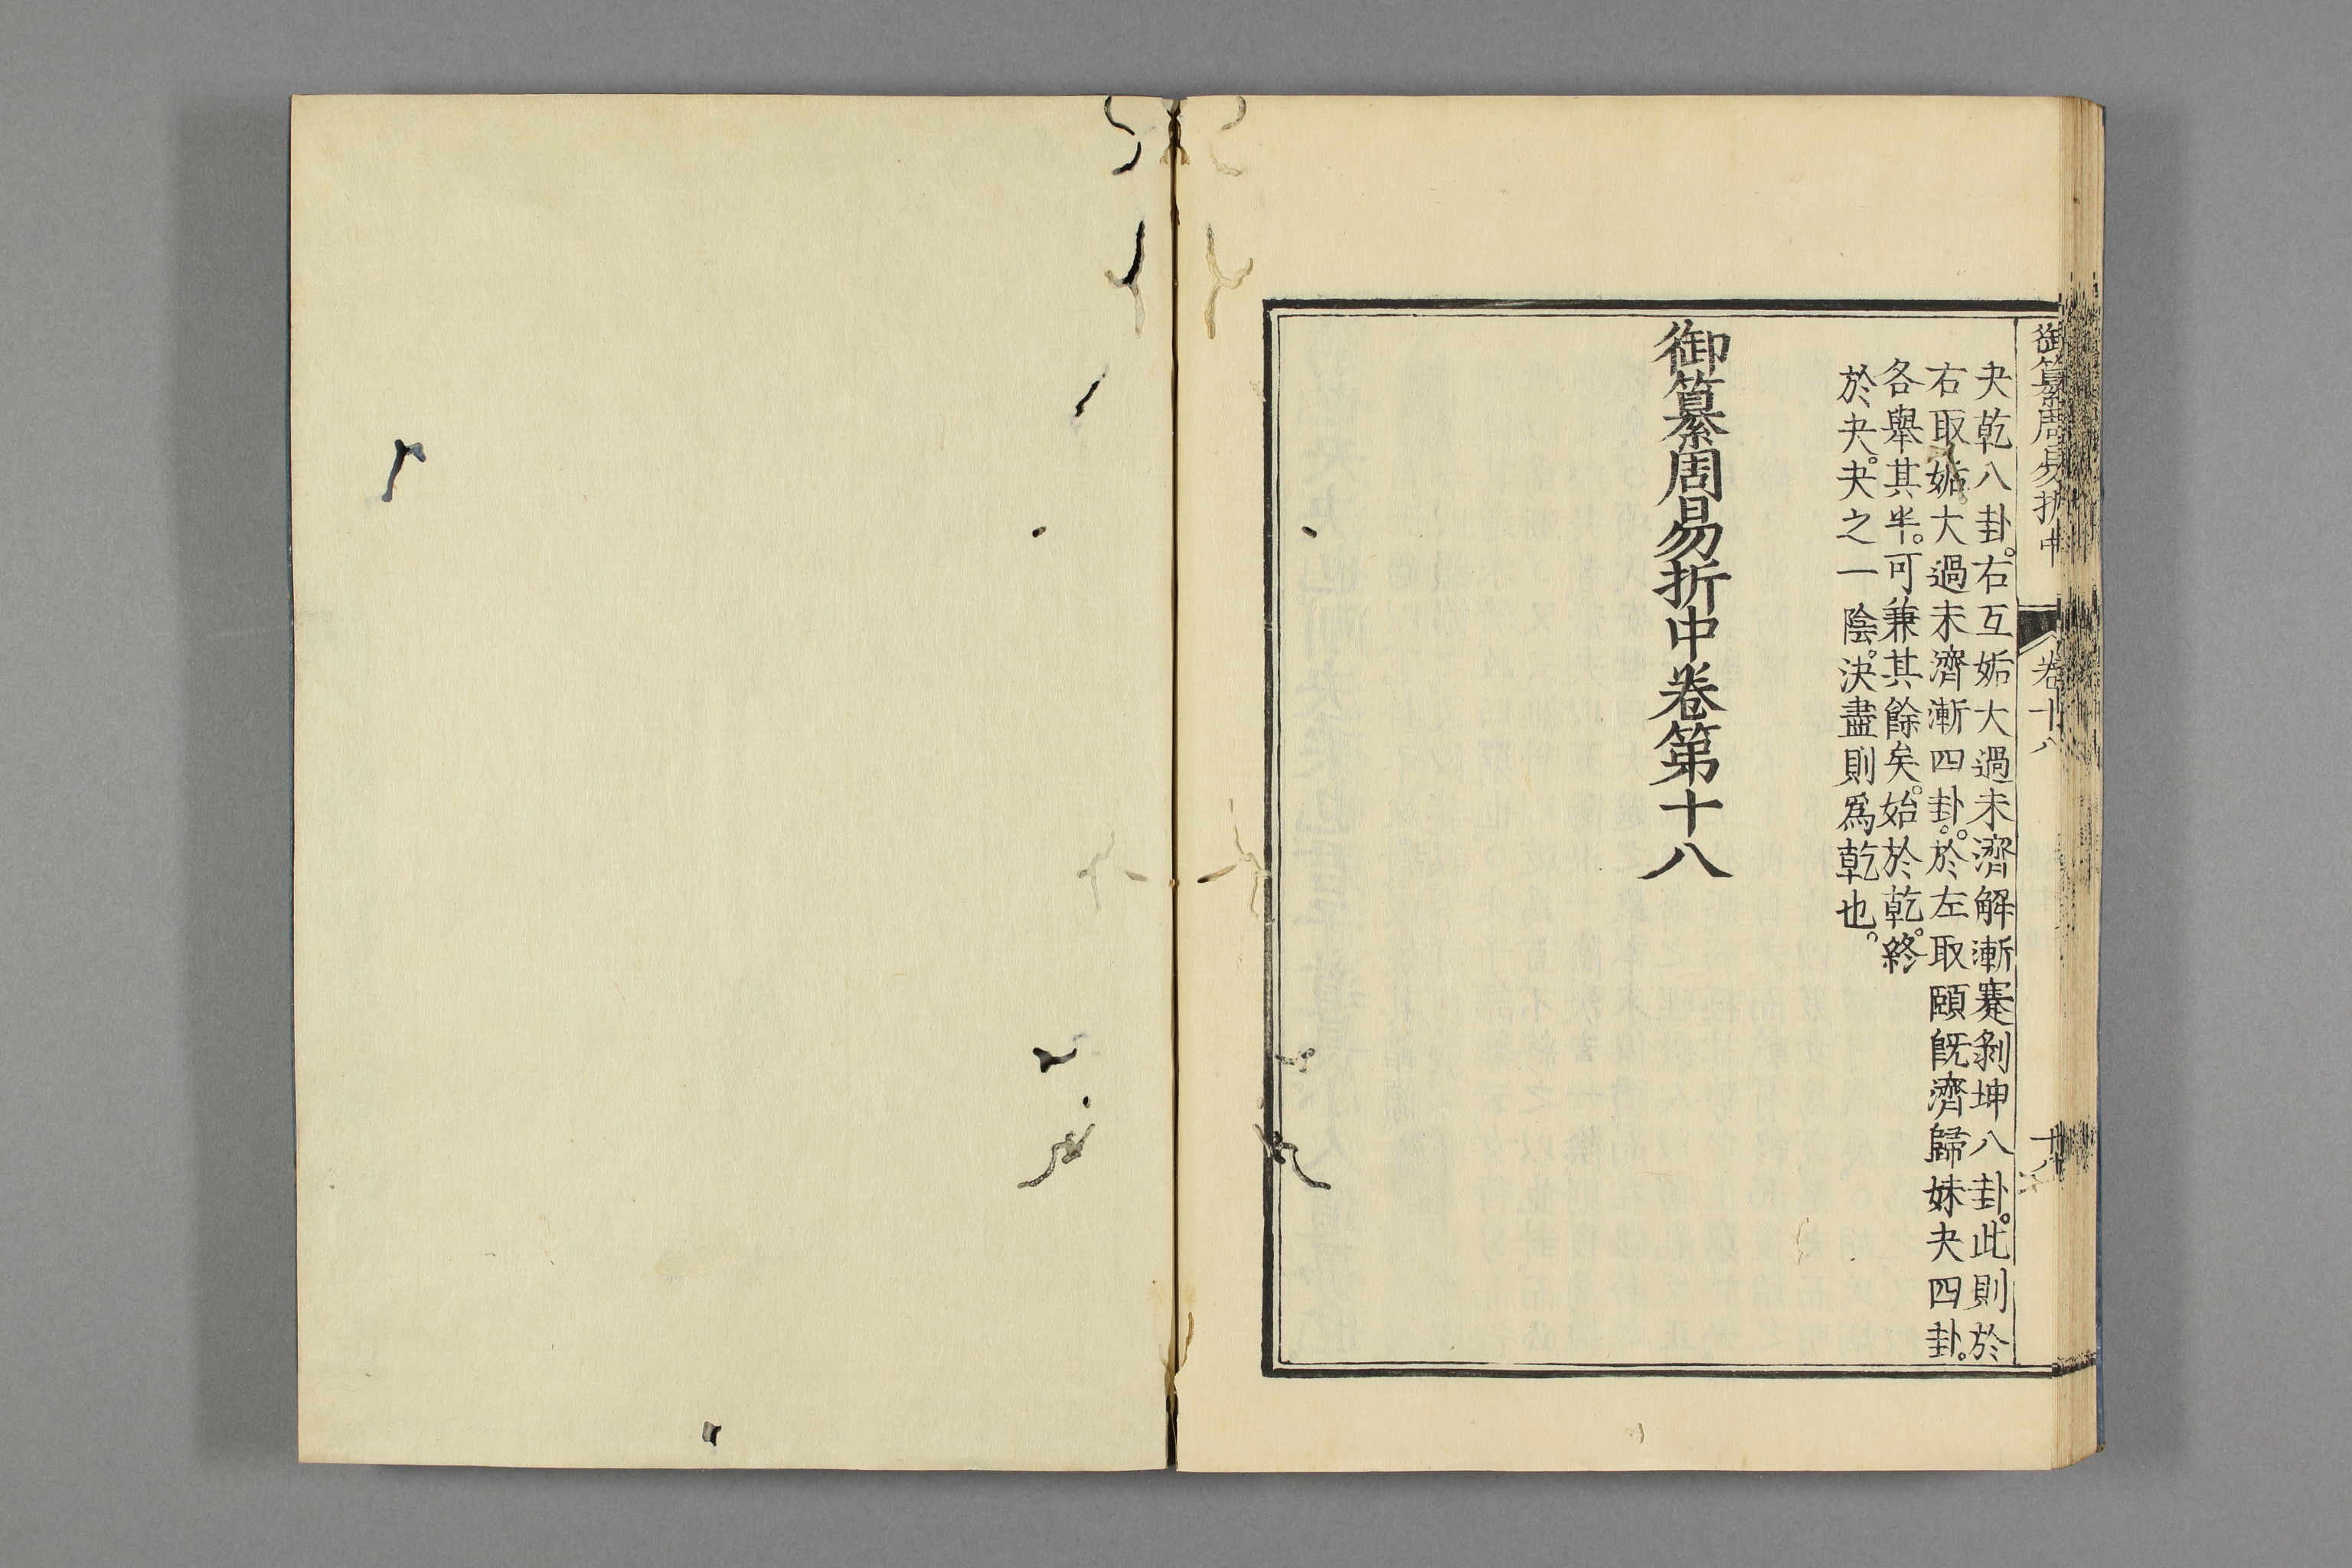 御纂周易折中 卷十八 十八
夬乾八卦。右互姤大過未濟解漸蹇剝坤八卦。此則於
右取姤。大過未濟漸四卦。於左取頤旣濟歸妹夬四卦。
各舉其半。可兼其餘矣。始於乾。終
於夬。夬之一陰。決盡則爲乾也。
御纂周易折中卷第十八